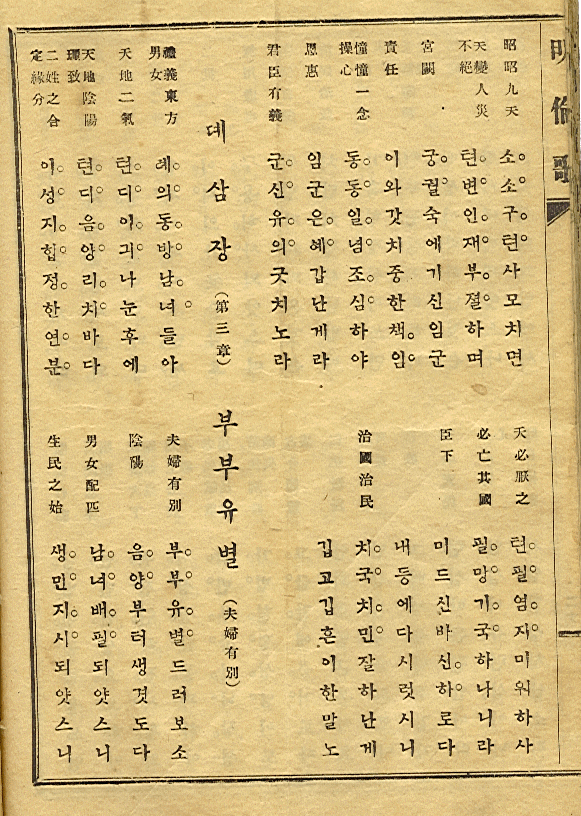 明倫歌
昭昭九天
소소구텬사모치면
天必厭之
텬필염지미워하사
天變人災
不絕
텬변인재부졀하며
必亡其國
필망기국하나니라
宮闕
궁궐숙에기신임군
臣下
미드신바신하로다
責任
이와갓치중한책임
내등에다시릿시니
憧憧一念
操心
동동일념조심하야
治國治民
치국치민잘하난게
恩惠
임군은혜갑난게라
깁고깁흔이한말노
君臣有義
군신유의긋치노라
뎨삼장(第三章) 부부유별(夫婦有別)
禮義東方
男女
례의동방남녀들아
夫婦有別
부부유별드러보소
天地二氣
텬디이긔나눈후에
陰陽
음양부터생겻도다
天地陰陽
理致
텬디음양리치바다
男女配匹
남녀배필되얏스니
二姓之合
定緣分
이성지합정한연분
生民之始
생민지시되얏스니